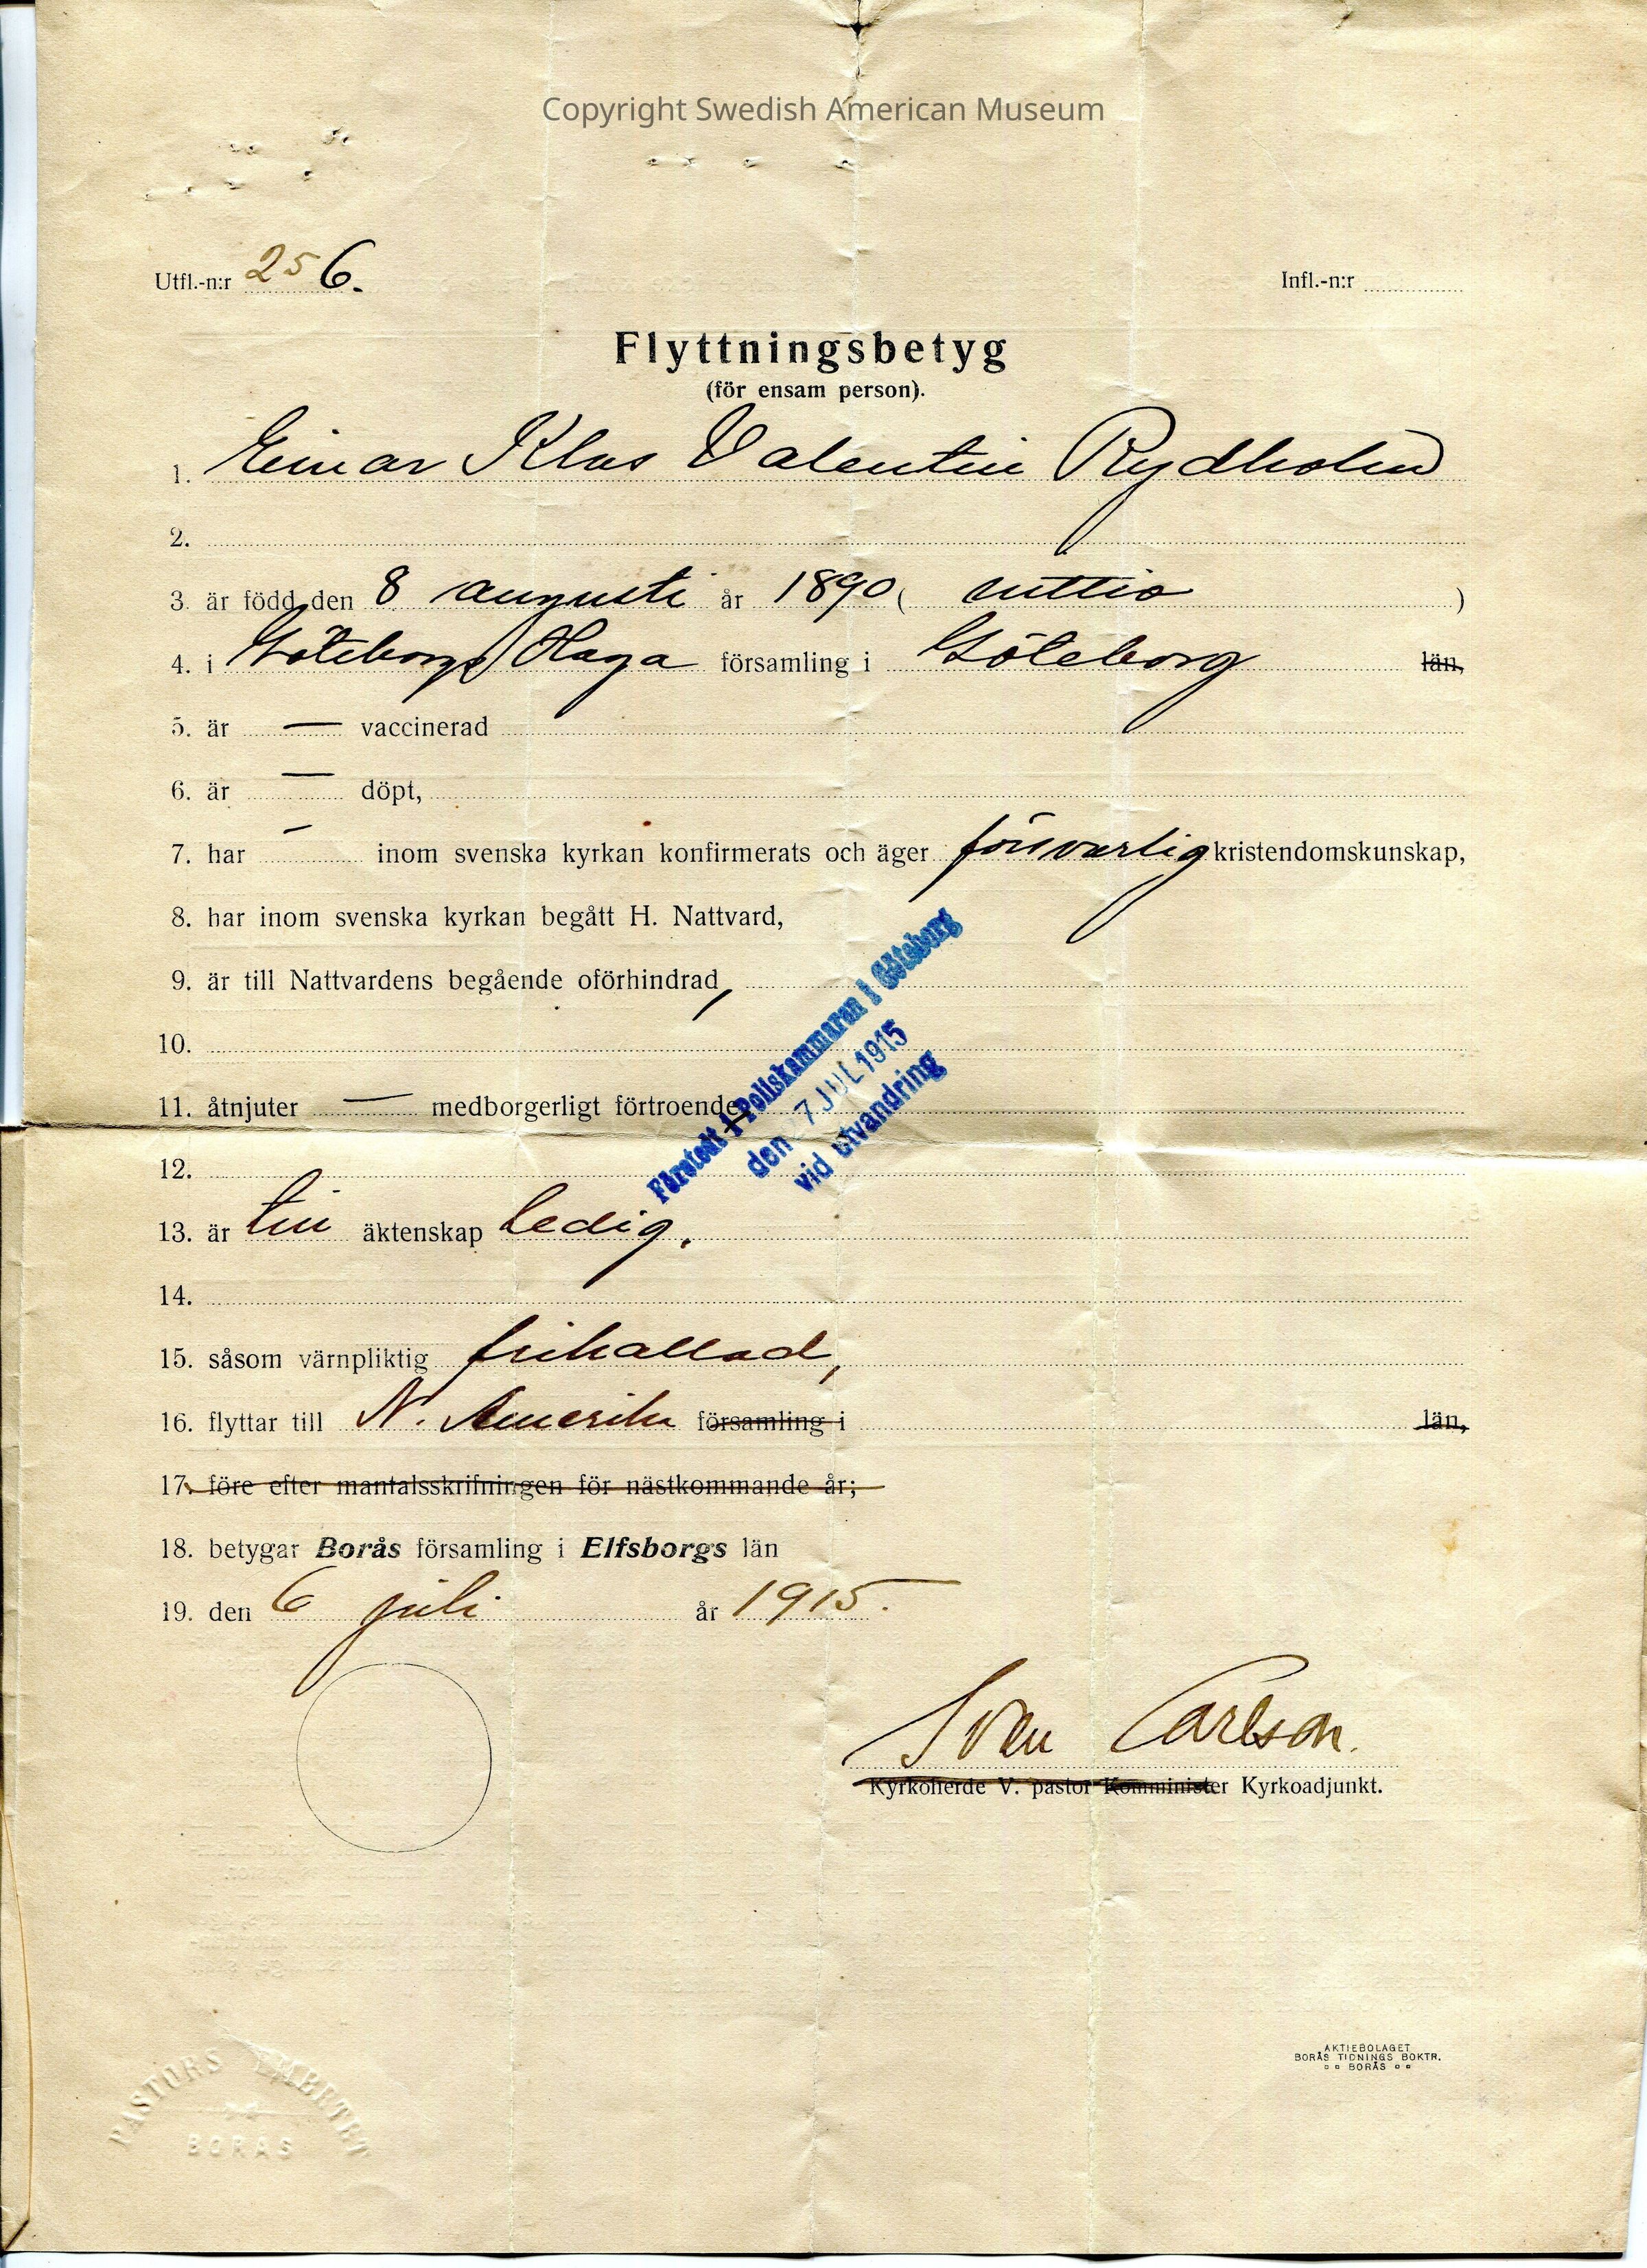 Copyright Swedish American Museum
Utfl.-n:r 256. Infl.-n:r
Flyttningsbetyg
(för ensam person).
1. Einar Klas Valentin Rydholm
2.
3. är född den 8 augusti år 1890 ( nittio )
4. i Göteborgs Haga församling i Göteborg län,
5. är — vaccinerad
6. är — döpt,
7. har — inom svenska kyrkan konfirmerats och äger försvarlig kristendomskunskap,
8. har inom svenska kyrkan begått H. Nattvard,
9. är till Nattvardens begående oförhindrad,
10.
11. åtnjuter — medborgerligt förtroende
Företedt i Poliskammaran i Göteborg
den 7 JUL 1915
vid utvandring
12.
13. är till äktenskap ledig.
14.
15. såsom värnpliktig frikallad,
16. flyttar till N. Amerika församling i län,
17. före efter mantalsskrifningen för nästkommande år;
18. betygar Borås församling i Elfsborgs län
19. den 6 juli år 1915.
Sven Carlson.
Kyrkoherde V. pastor Komminister Kyrkoadjunkt.
AKTIEBOLAGET
BORÅS TIDNINGS BOKTR.
BORÅS
PASTORS EMBETET
BORÅS